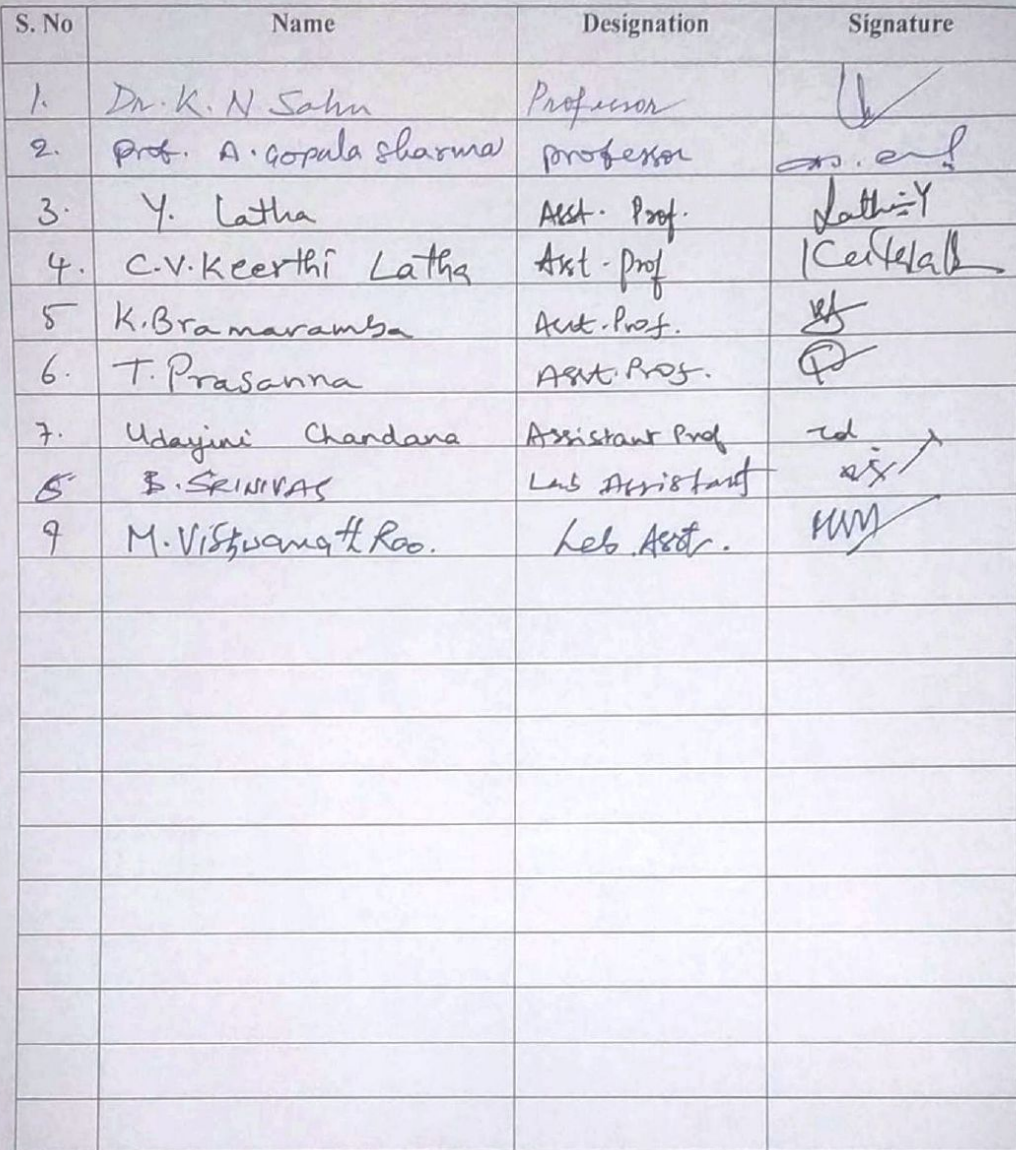 S. No Name Designation Signature
1. Dr. K. N Sahu Professor
2. Prof. A. Gopala Sharma professor
3. Y. Latha Asst. Prof. Latha Y
4. C.V. Keerthi Latha Asst. Prof
5 K. Bramaramba Asst. Prof.
6. T. Prasanna Asst. Prof.
7. Udayini Chandana Assistant Prof
8 B. SRINIVAS Lab Assistant
9 M. Vishwanath Rao. Lab. Asst.